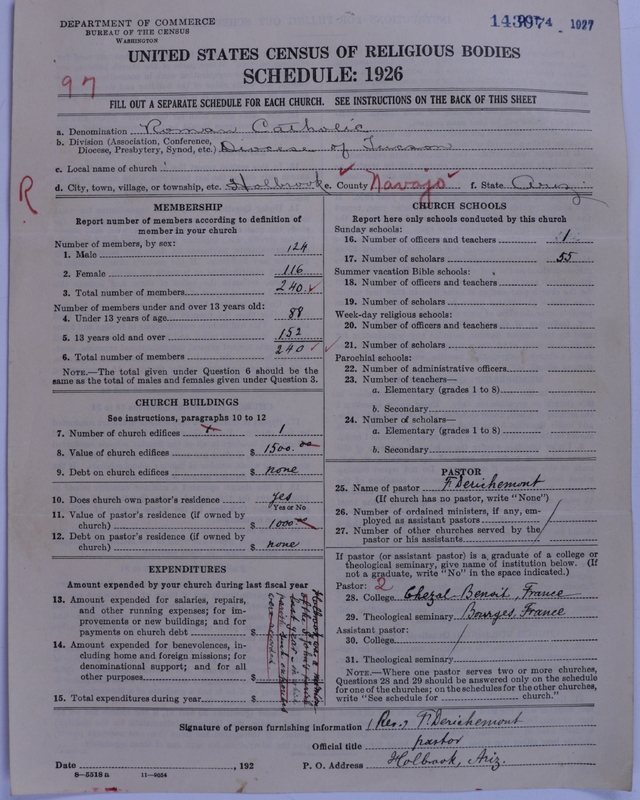 DEPARTMENT OF COMMERCE
BUREAU OF THE CENSUS
WASHINGTON
1927
UNITED STATES CENSUS OF RELIGIOUS BODIES
SCHEDULE: 1926
97
FILL OUT A SEPARATE SCHEDULE FOR EACH CHURCH. SEE INSTRUCTIONS ON THE BACK OF THIS SHEET
a. Denomination Roman Catholic
b. Division (Association, Conference, Diocese, Presbytery, Synod, etc.) Diocese of Tucson
c. Local name of church
d. City, town, village, or township, etc. Holbrook e. County Navajo f. State Ariz
R
MEMBERSHIP
Report number of members according to definition of
member in your church
Number of members, by sex:
1. Male 124
2. Female 116
3. Total number of members 240
Number of members under and over 13 years old:
4. Under 13 years of age 88
5. 13 years old and over 152
6. Total number of members 240
NOTE.—The total given under Question 6 should be
same as the total of males and females given under Question 3.
CHURCH BUILDINGS
See instructions, paragraphs 10 to 12
7. Number of church edifices 1
8. Value of church edifices $ 1500.00
9. Debt on church edifices $ none
10. Does church own pastor's residence yes
Yes or No
11. Value of pastor's residence (if owned by
church) $ 1000
12. Debt on pastor's residence (if owned by
church) $ none
EXPENDITURES
Amount expended by your church during last fiscal year
13. Amount expended for salaries, repairs,
and other running expenses; for im-
provements or new buildings; and for
payments on church debt $
14. Amount expended for benevolences, in-
cluding home and foreign missions; for
denominational support; and for all
other purposes $
15. Total expenditures during year $
CHURCH SCHOOLS
Report here only schools conducted by this church
Sunday schools:
16. Number of officers and teachers 1
17. Number of scholars 55
Summer vacation Bible schools:
18. Number of officers and teachers
19. Number of scholars
Week-day religious schools:
20. Number of officers and teachers
21. Number of scholars
Parochial schools:
22. Number of administrative officers
23. Number of teachers—
a. Elementary (grades 1 to 8)
b. Secondary
24. Number of scholars—
a. Elementary (grades 1 to 8)
b. Secondary
PASTOR
25. Name of pastor F. Derichemont
(If church has no pastor, write "None")
26. Number of ordained ministers, if any, em-
ployed as assistant pastors
27. Number of other churches served by the
pastor or his assistants
If pastor (or assistant pastor) is a graduate of a college or
theological seminary, give name of institution below. (If
not a graduate, write "No" in the space indicated.)
Pastor: 2
28. College Chezal-Benoit, France
29. Theological seminary Bourges, France
Assistant pastor:
30. College
31. Theological seminary
NOTE.—Where one pastor serves two or more churches,
Questions 28 and 29 should be answered only on the schedule
for one of the churches; on the schedules for the other churches,
write "See schedule for church."
Signature of person furnishing information Rev. F. Derichemont
Official title pastor
Date , 192 P. O. Address Holbrook, Ariz.
8—5518 a 11—9054